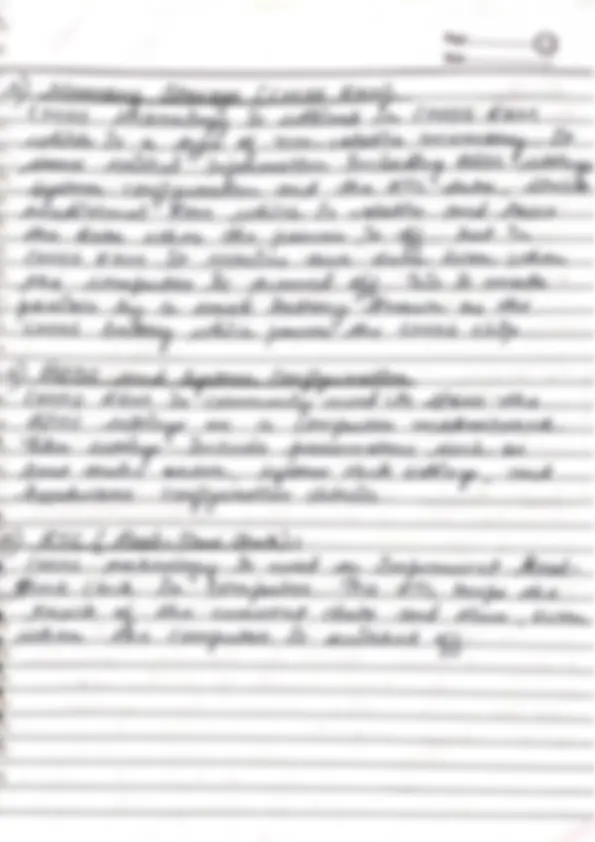 Memory Storage (CMOS RAM)
CMOS technology is utilized in CMOS RAM
which is a type of non-volatile memory to
store critical information including BIOS settings
system configuration and the RTC data.
traditional RAM which is volatile and
the data when the power is off but in
CMOS RAM it retains data even when
the computer is powered off. This is made
possible by a small battery known as the
CMOS battery which powers the CMOS chip
BIOS and System Configuration
CMOS RAM is commonly used to store the
BIOS settings on a computer motherboard.
settings include parameters such as
boot order, system clock settings, and
hardware configuration details
RTC (Real-Time Clock):
CMOS technology is used to implement Real-
Time Clock in computers. The RTC keeps the
track of the current date and time, even
when the computer is switched off